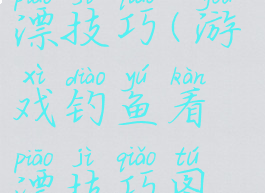 piāo jì qiǎo yóu
漂技巧(游
xì diào yú kàn
戏钓鱼看
piāo jì qiǎo tú
漂技巧图